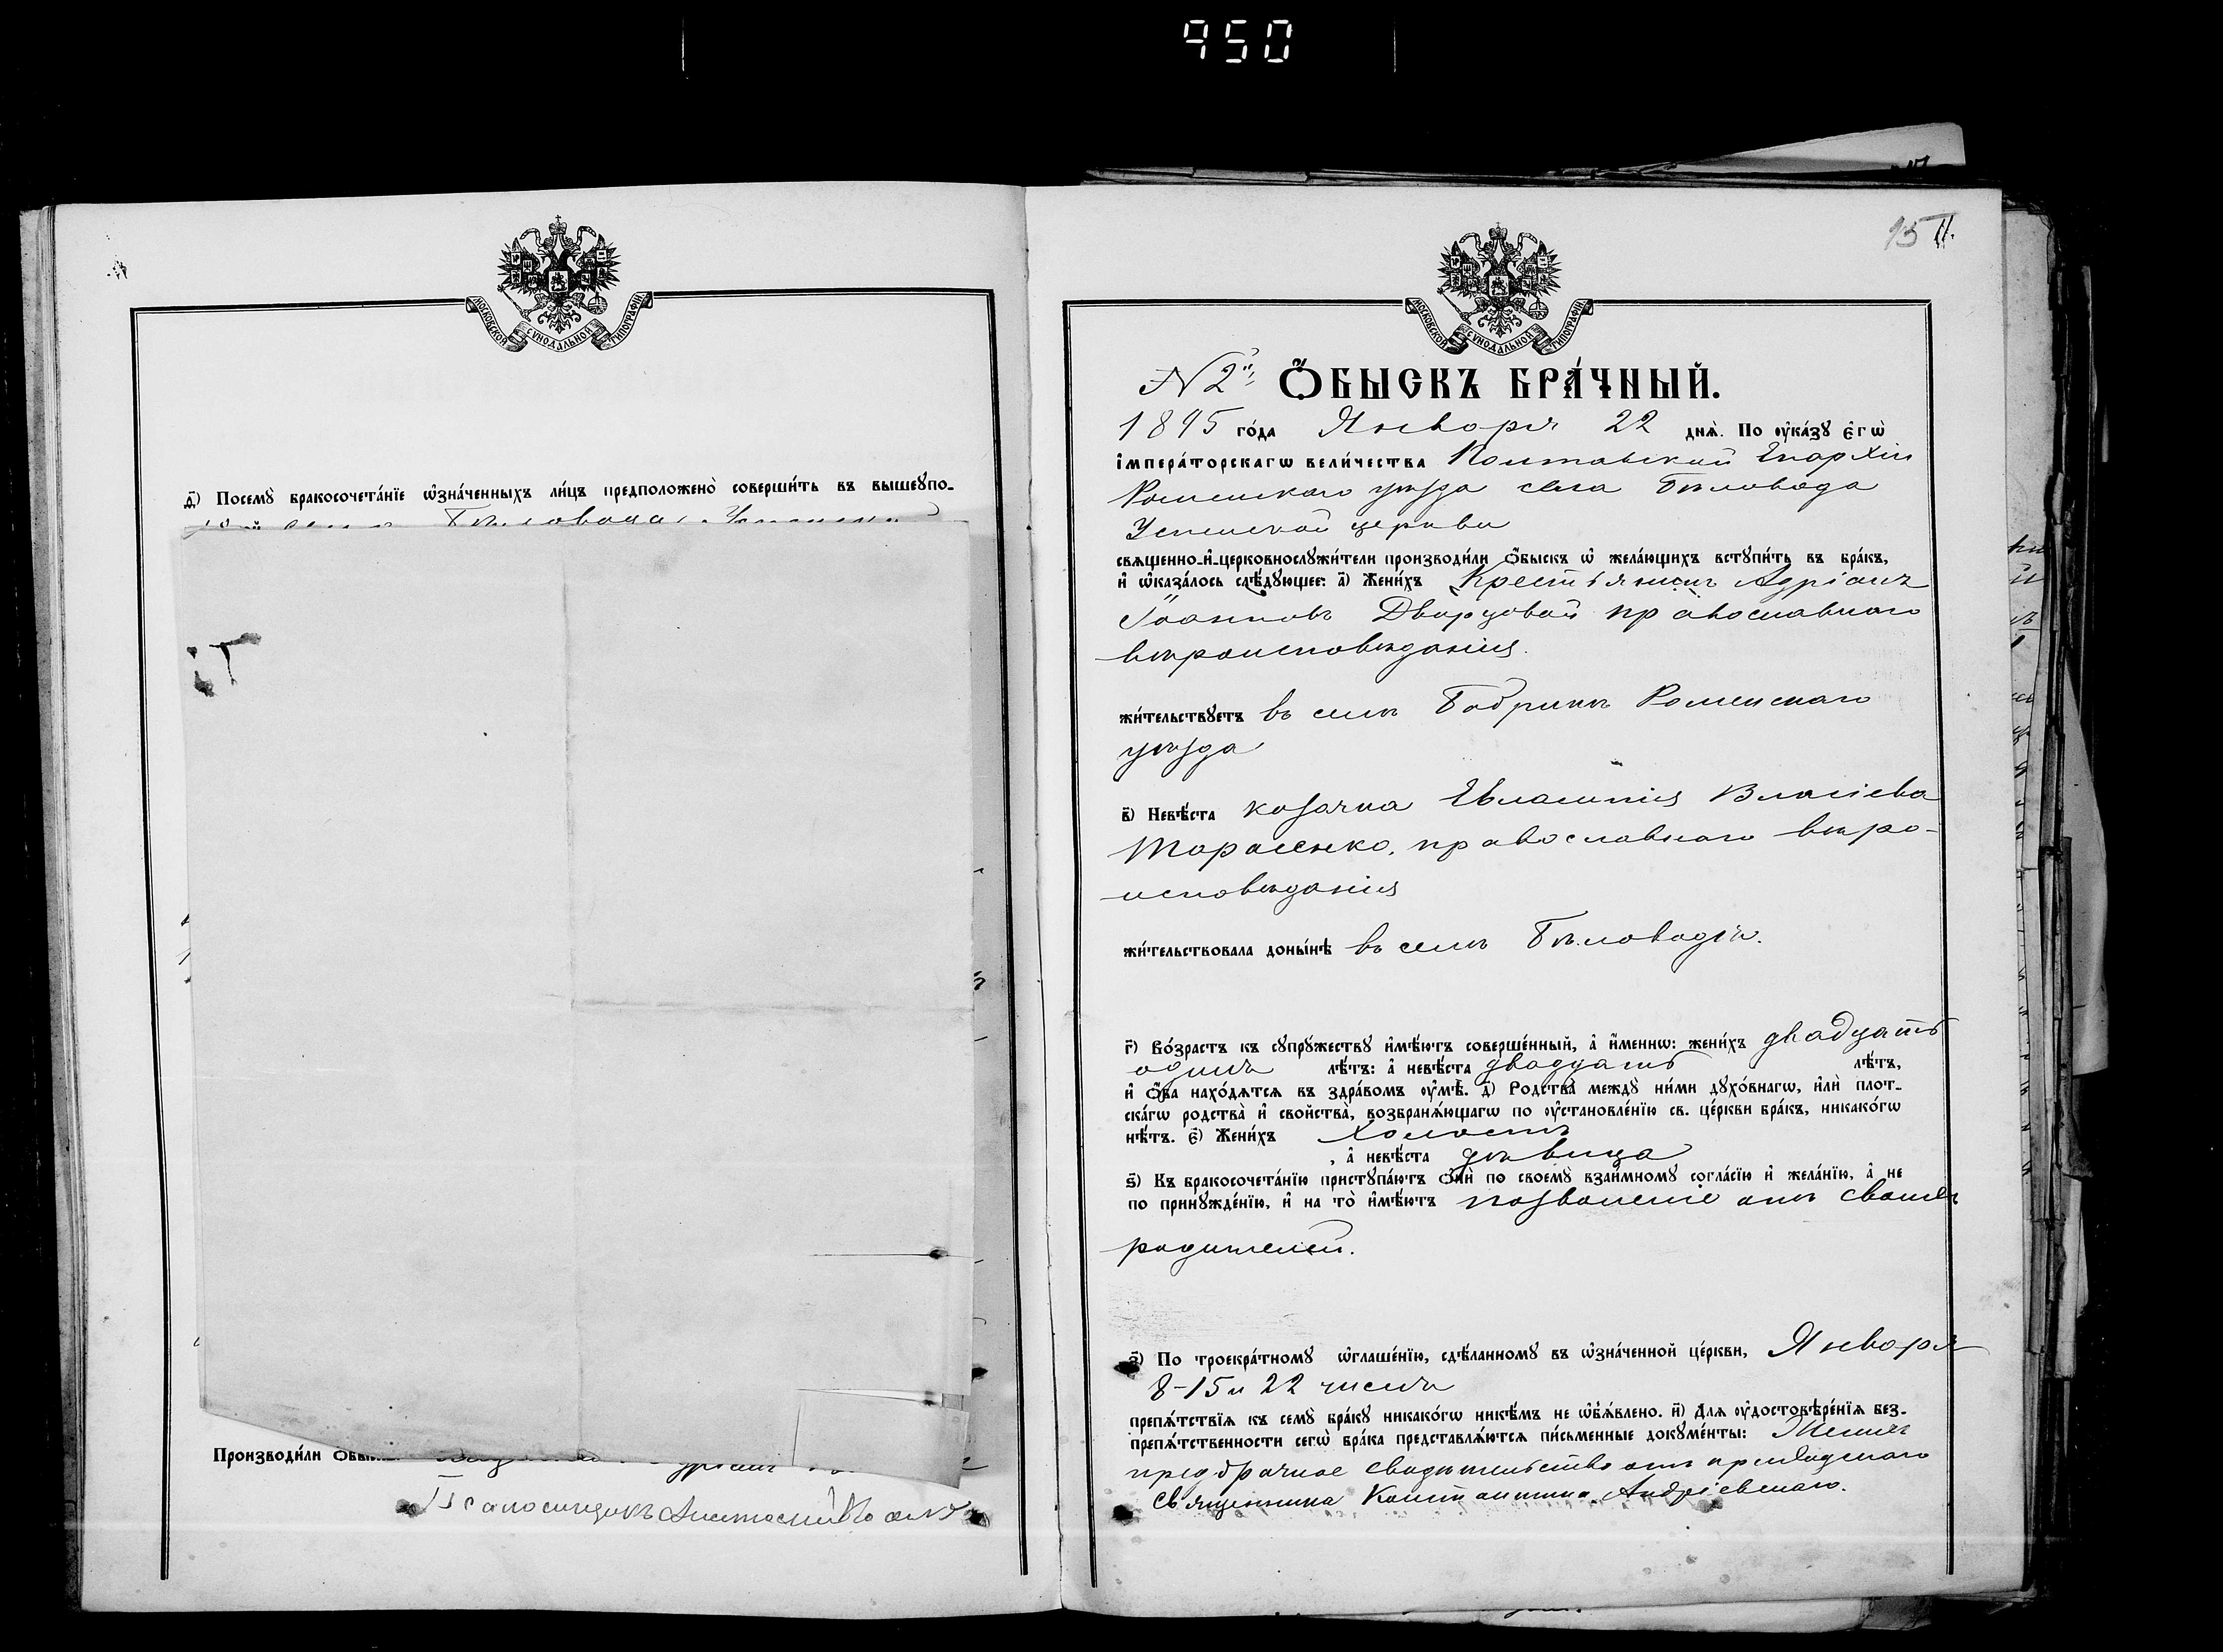 950
МОСКОВСКОЙ СѴНОДАЛЬНОЙ ТИПОГРАФІИ
д҃) Посемꙋ̀ бракосочета́нїе ѡ҆зна́ченныхъ ли́цъ предположено̀ соверши́ть въ вышеꙋпо-
Производи́ли
Псаломщикъ
15
МОСКОВСКОЙ СѴНОДАЛЬНОЙ ТИПОГРАФІИ
N 2й Ѻ҆БЫСКЪ БРА́ЧНЫЙ.
1895 го́да Января 22 днѧ̀. По ᲂу҆ка́зꙋ є҆гѡ̀
і҆мпера́торскагѡ вели́чества Полтавской Епархіи
Роменскаго уѣзда села Бѣловода
Успенской церкви
свѧщенно-и҆-церковнослꙋжи́тели производи́ли ѻ҆быскъ ѡ҆ жела́ющихъ встꙋпи́ть въ бра́къ,
и҆ ѡ҆каза́лось слѣ́дꙋющее: а҃) Жени́хъ Крестьянинъ Адріанъ
Іоанновъ Дворцовой православнаго
вѣроисповѣданія.
жи́тельствꙋетъ въ селѣ Бобрикѣ Роменскаго
уѣзда
в҃) Невѣ́ста козачка Евлампія Власіева
Тарасенко, православнаго вѣро-
исповѣданія
жи́тельствовала доны́нѣ въ селѣ Бѣловодѣ.
г҃) Во́зрастъ къ сꙋпрꙋжествꙋ̀ и҆мѣ́ютъ соверше́нный, а҆ и҆́меннѡ: жени́хъ двадцать
одинъ лѣ́тъ: а҆ невѣ́ста двадцать лѣ́тъ,
и҆ ѻ҆́ба нахо́дѧтсѧ въ здра́вомъ ᲂу҆мѣ̀. д҃) Родства̀ междꙋ̀ ни́ми дꙋхо́внагѡ, и҆лѝ плот-
ска́гѡ родства̀ и҆ сво́йства, возбранѧ́ющагѡ по ᲂу҆становле́нїю св. це́ркви бра́къ, никако́гѡ
нѣ́тъ. є҃) Жени́хъ Холостъ
, а҆ невѣ́ста дѣвица
ѕ҃) Къ бракосочета́нїю пристꙋпа́ютъ ѻ҆нѝ по своемꙋ̀ взаи́мномꙋ согла́сїю и҆ жела́нїю, а҆ не
по принꙋжде́нїю, и҆ на то̀ и҆мѣ́ютъ позволеніе отъ своихъ
родителей.
з҃) По троекра́тномꙋ ѡ҆глаше́нїю, сдѣ́ланномꙋ въ ѡ҆зна́ченной це́ркви, Января
8-15 и 22 числа
препѧ́тствїѧ къ семꙋ̀ бра́кꙋ никако́гѡ никѣ́мъ не ѡ҆б̾ѧ́влено. и҃) Длѧ ᲂу҆достовѣре́нїѧ без-
препѧ́тственности сегѡ̀ бра́ка представлѧ́ютсѧ пи́сьменные докꙋме́нты: Жениха
предбрачное свидѣтельство отъ приходскаго
Священника Константина Андріевскаго.